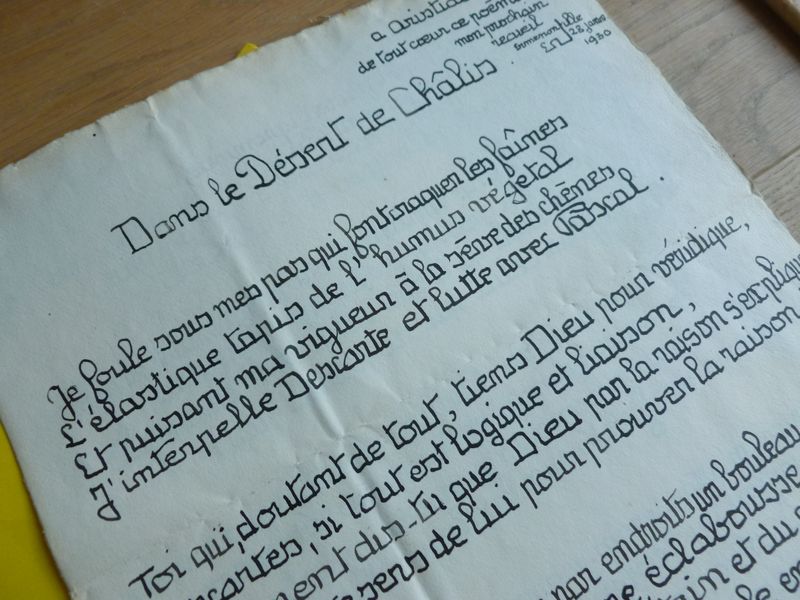 a Aristide
de tout cœur ce poème
mon prochain
recueil
Ermenonville
28 janv
1930
Dans le Désert de Châlis.
Je foule sous mes pas qui font craquer les faînes
L'élastique tapis de l'humus végétal
Et puisant ma vigueur à la sève des chênes
J'interpelle Descarte et lutte avec Pascal.
Toi qui, doutant de tout, tiens Dieu pour véridique,
cartes, si tout est logique et liaison,
ment dis-tu que Dieu par la raison s'explique
sens de lui pour prouver la raison
par endroits un bouleau
éclabousse
et du
le